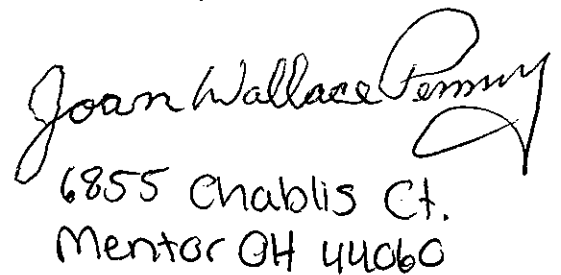 Joan Wallace Penny
6855 Chablis Ct.
Mentor OH 44060